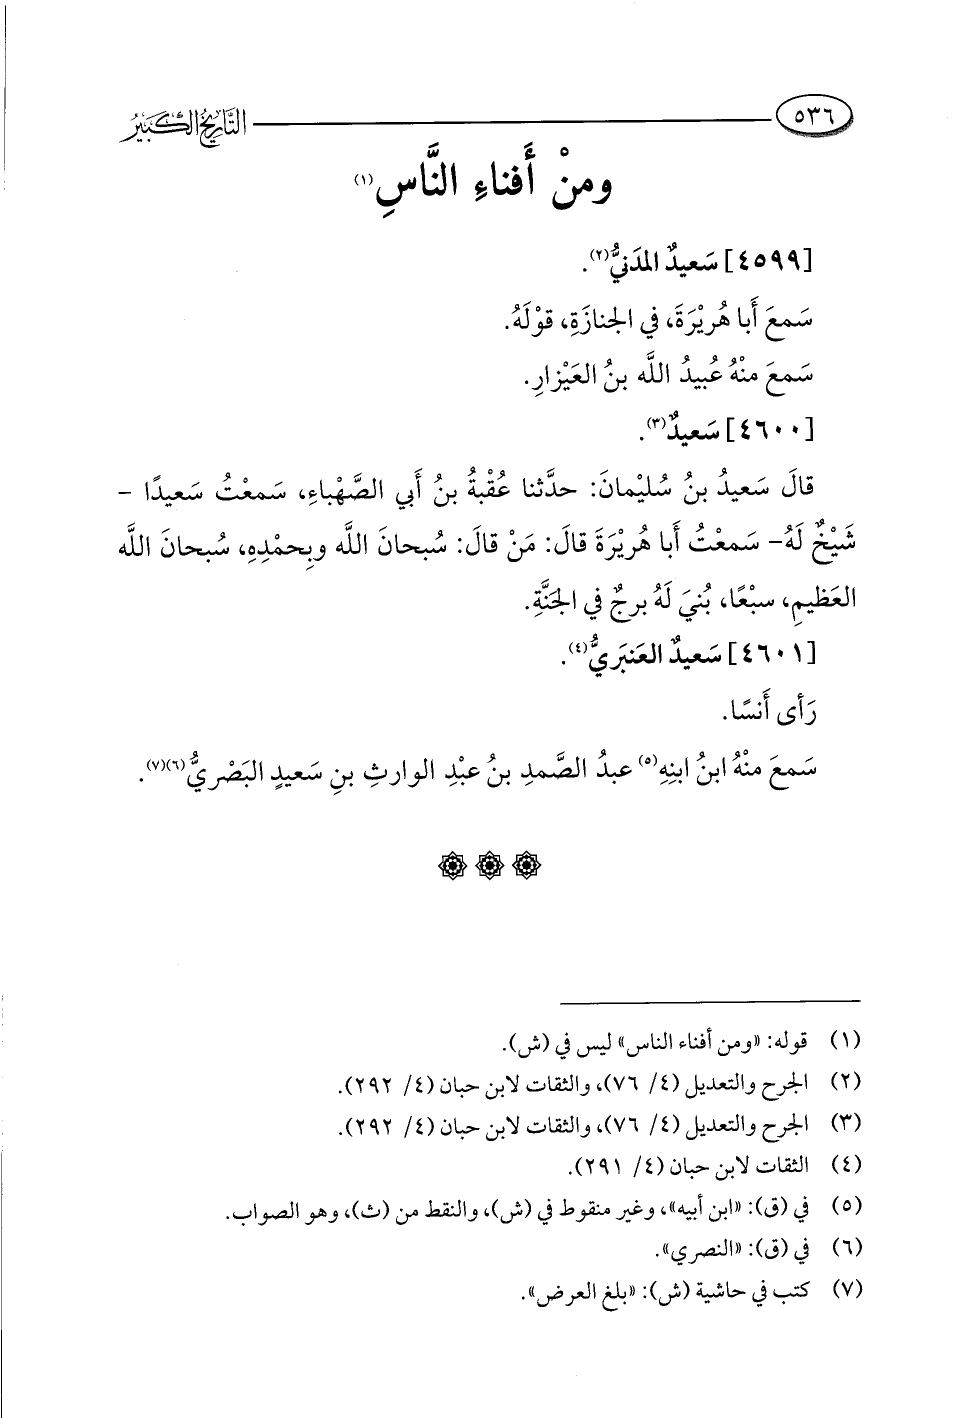 ٥٣٦ التَّاريخُ الكَبيرُ
ومنْ أَفناءِ النَّاسِ(١)
[٤٥٩٩] سَعيدٌ المدَنيُّ(٢).
سَمعَ أَبا هُريْرَةَ، في الجنازَةِ، قوْلَهُ.
سَمعَ منْهُ عُبيدُ اللَّه بنُ العَيْزارِ.
[٤٦٠٠] سَعيدٌ(٣).
قالَ سَعيدُ بنُ سُليْمانَ: حدَّثنا عُقْبةُ بنُ أَبي الصَّهْباءِ، سَمعْتُ سَعيدًا -
شَيْخٌ لَهُ- سَمعْتُ أَبا هُريْرَةَ قالَ: مَنْ قالَ: سُبحانَ اللَّه وبِحمْدِهِ، سُبحانَ اللَّه
العَظيمِ، سبْعًا، بُنيَ لَهُ برجٌ في الجَنَّةِ.
[٤٦٠١] سَعيدٌ العَنبَريُّ(٤).
رَأى أَنسًا.
سَمعَ منْهُ ابنُ ابنِهِ(٥) عبدُ الصَّمدِ بنُ عبْدِ الوارثِ بنِ سَعيدٍ البَصْريُّ(٦)(٧).
(١) قوله: «ومن أفناء الناس» ليس في (ش).
(٢) الجرح والتعديل (٤/ ٧٦)، والثقات لابن حبان (٤/ ٢٩٢).
(٣) الجرح والتعديل (٤/ ٧٦)، والثقات لابن حبان (٤/ ٢٩٢).
(٤) الثقات لابن حبان (٤/ ٢٩١).
(٥) في (ق): «ابن أبيه»، وغير منقوط في (ش)، والنقط من (ث)، وهو الصواب.
(٦) في (ق): «النصري».
(٧) كتب في حاشية (ش): «بلغ العرض».